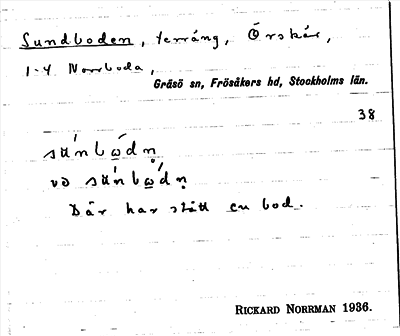 Sundboden, terräng, Örskär,
1-4 Norrboda,
Gräsö sn, Frösåkers hd, Stockholms län.
38
Där har stått en bod.
RICKARD NORRMAN 1936.